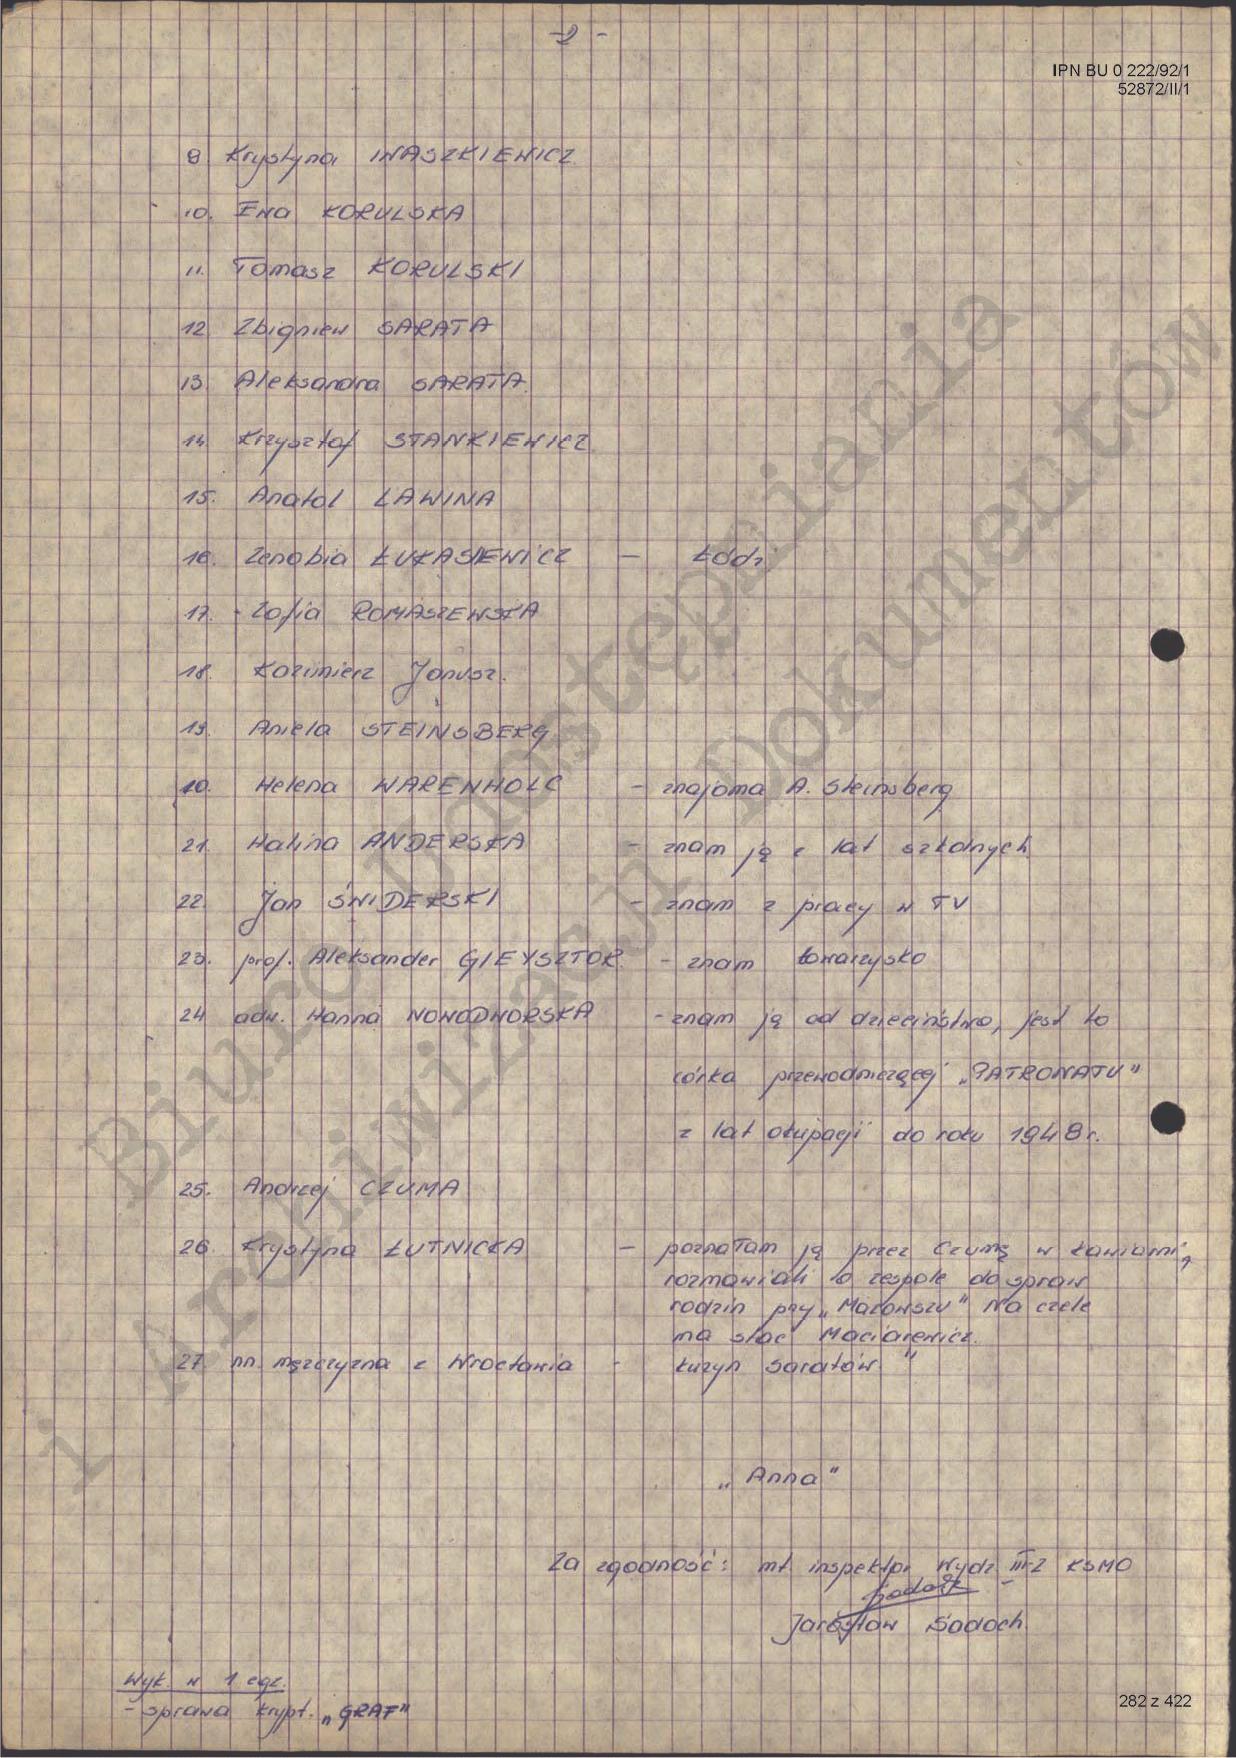 -2-
IPN BU 0 222/92/1
52872/II/1
9 Krystyna IWASZKIEWICZ
10. Ewa KORULSKA
11. Tomasz KORULSKI
12 Zbigniew SARATA
13. Aleksandra SARATA
14. Krzysztof STANKIEWICZ
15. Anatol LAWINA
16. Zenobia ŁUKASIEWICZ - Łódź
17. - Zofia ROMASZEWSKA
18. Kazimierz Janusz.
19. Aniela STEINSBERG
20. Helena WARENHOLC - znajoma A. Steinsberg
21. Halina ANDERSKA - znam ją z lat szkolnych
22. Jan ŚWIDERSKI - znam z pracy w TV
23. prof. Aleksander GIEYSZTOR - znam towarzysko
24 adw. Hanna NOWODWORSKA - znam ją od dzieciństwa, jest to
córka przewodniczącej „PATRONATU"
z lat okupacji do roku 1948 r.
25. Andrzej CZUMA
26. Krystyna ŁUTNICKA - poznałam ją przez Czumę w kawiarni,
rozmawiali o zespole do spraw
rodzin przy „Mazowszu" Na czele
ma stać Maciarewicz.
27. nn. mężczyzna z Wrocławia - kuzyn Saratów "
„Anna"
Za zgodność: mł. inspektor Wydz. III-2 KSMO
Sadoch
Jarosław Sadoch
Wyk. w 1 egz.
- sprawa krypt. „GRAF"
282 z 422
Biuro Udostępniania
i Archiwizacji Dokumentów